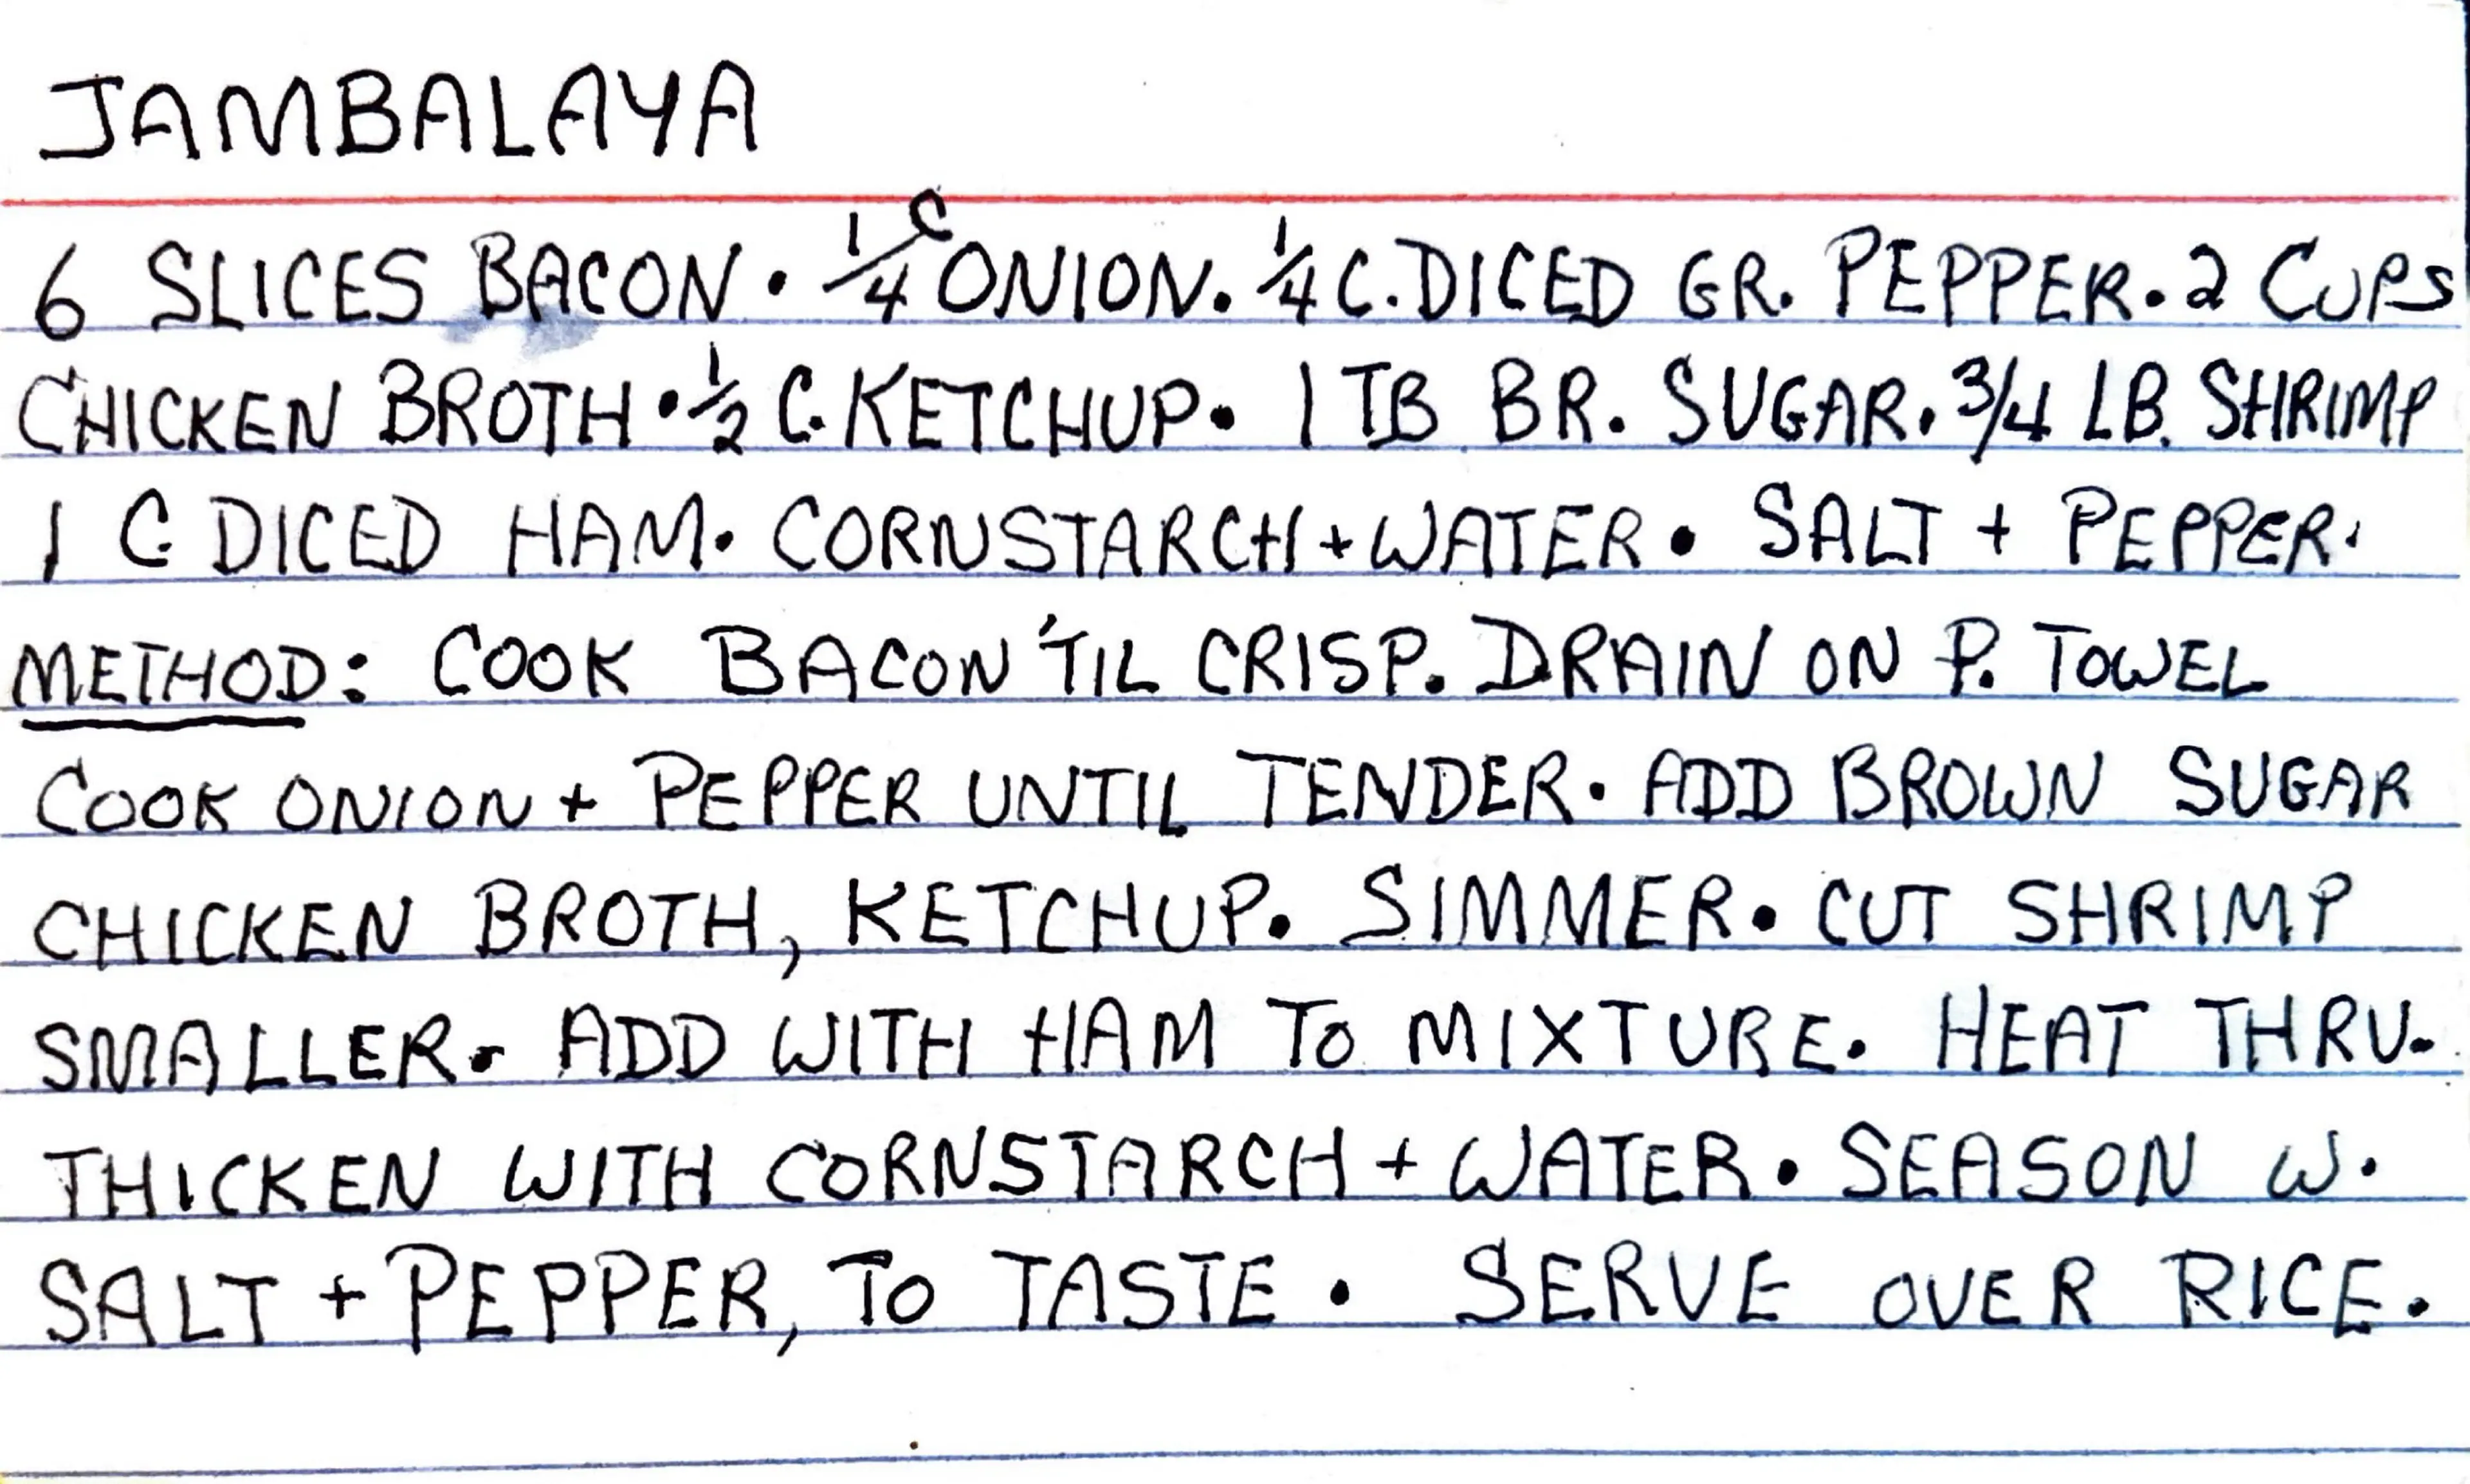 JAMBALAYA
6 SLICES BACON • 1/4 C ONION. 1/4 C. DICED GR. PEPPER. 2 CUPS
CHICKEN BROTH • 1/2 C. KETCHUP • 1 TB BR. SUGAR. 3/4 LB. SHRIMP
1 C DICED HAM. CORNSTARCH + WATER • SALT + PEPPER.
METHOD: COOK BACON 'TIL CRISP. DRAIN ON P. TOWEL
COOK ONION + PEPPER UNTIL TENDER. ADD BROWN SUGAR
CHICKEN BROTH, KETCHUP. SIMMER. CUT SHRIMP
SMALLER. ADD WITH HAM TO MIXTURE. HEAT THRU.
THICKEN WITH CORNSTARCH + WATER. SEASON W.
SALT + PEPPER, TO TASTE. SERVE OVER RICE.